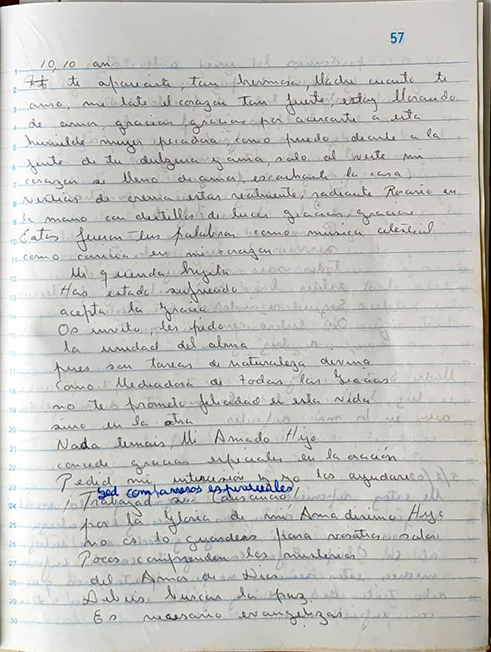 57
10,10 am
te apareciste, tan hermosa, Madre cuanto te
amo, me late el corazón tan fuerte, estoy llorando
de amor, gracias, gracias por acercarte a esta
humilde mujer pecadora como puedo decirle a la
gente de tu dulzura y amor, solo al verte mi
corazon se lleno de amor, escucharte la casa
vestias de crema estas realmente, radiante Rosario en
la mano con destellos de luces gracias, gracias
Estas fueron tus palabras como música celestial
como caricia en mi corazon
Mi querida hijita
Has estado sufriendo
acepta la gracia
Os invito, les pido
la unidad del alma
pues son tareas de naturaleza divina
Como Mediadora de Todas las Gracias
no te prometo felicidad en esta vida
sino en la otra
Nada temais Mi Amado Hijo
concede gracias especiales en la oración
Pedid mi intercesión y yo los ayudare
Sed compañeros espirituales
¡Trabajad sin cansancio!
por la Gloria de mi Amadisimo Hijo
no os lo guardeis para vosotras solas
Pocos comprenden los misterios
del Amor de Dios
Debeis buscar la paz
Es necesario evangelizar